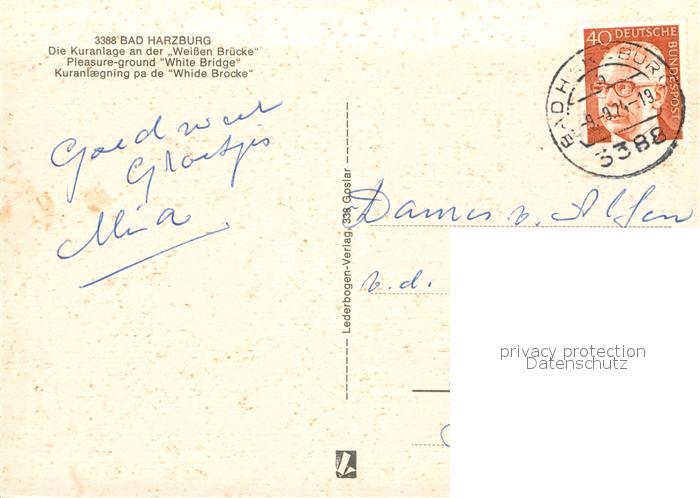 3388 BAD HARZBURG
Die Kuranlage an der „Weißen Brücke"
Pleasure-ground "White Bridge"
Kuranlægning pa de "Whide Brocke"
40 DEUTSCHE BUNDESPOST
BAD HARZBURG
-9.74-19
3388
Goed weer
Groetjes
Mia
Lederbogen-Verlag, 338 Goslar
Dames v. Alfen
v.d.
privacy protection
Datenschutz